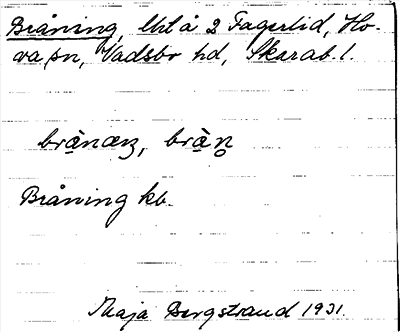 Bråning, lht å 2 Fagerlid, Ho-
va sn, Vadsbo hd, Skarab. l.
Bråning kb.
Maja Bergstrand 1931.